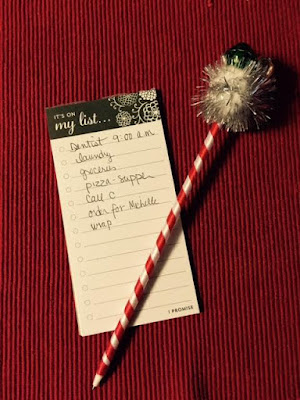 IT'S ON
my list...
Dentist 9:00 a.m
laundry
groceries
pizza - supper
Call C
order for Michelle
wrap
I PROMISE